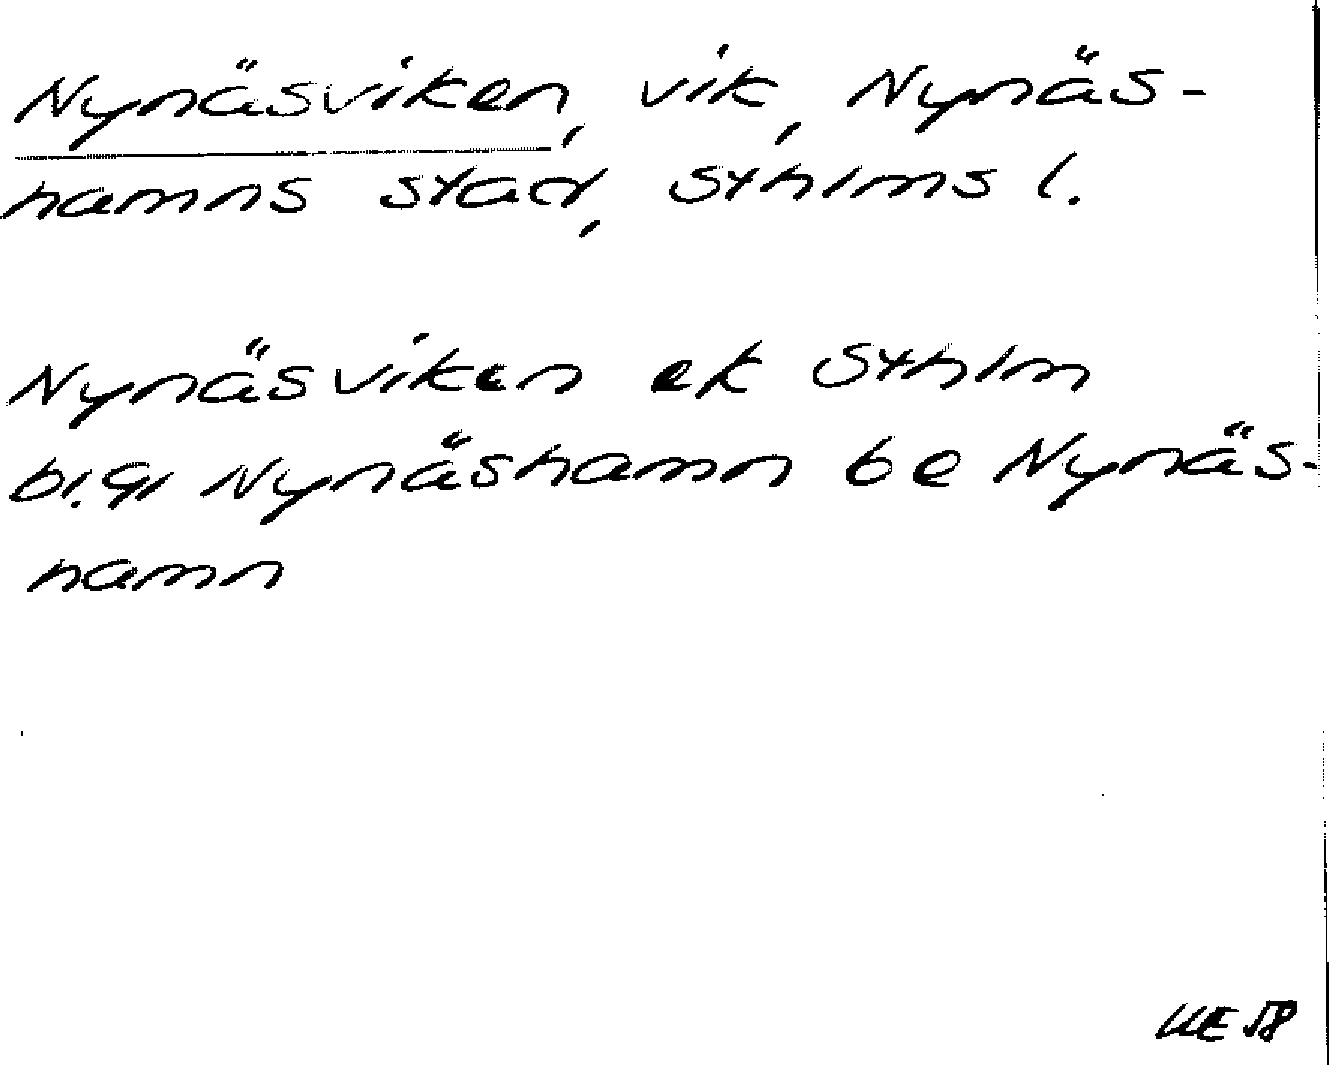 Nynäsviken, vik, Nynäs-
hamns stad, Sthlms l.
Nynäsviken ek Sthlm
bl.91 Nynäshamn be Nynäs-
hamn
UE 58